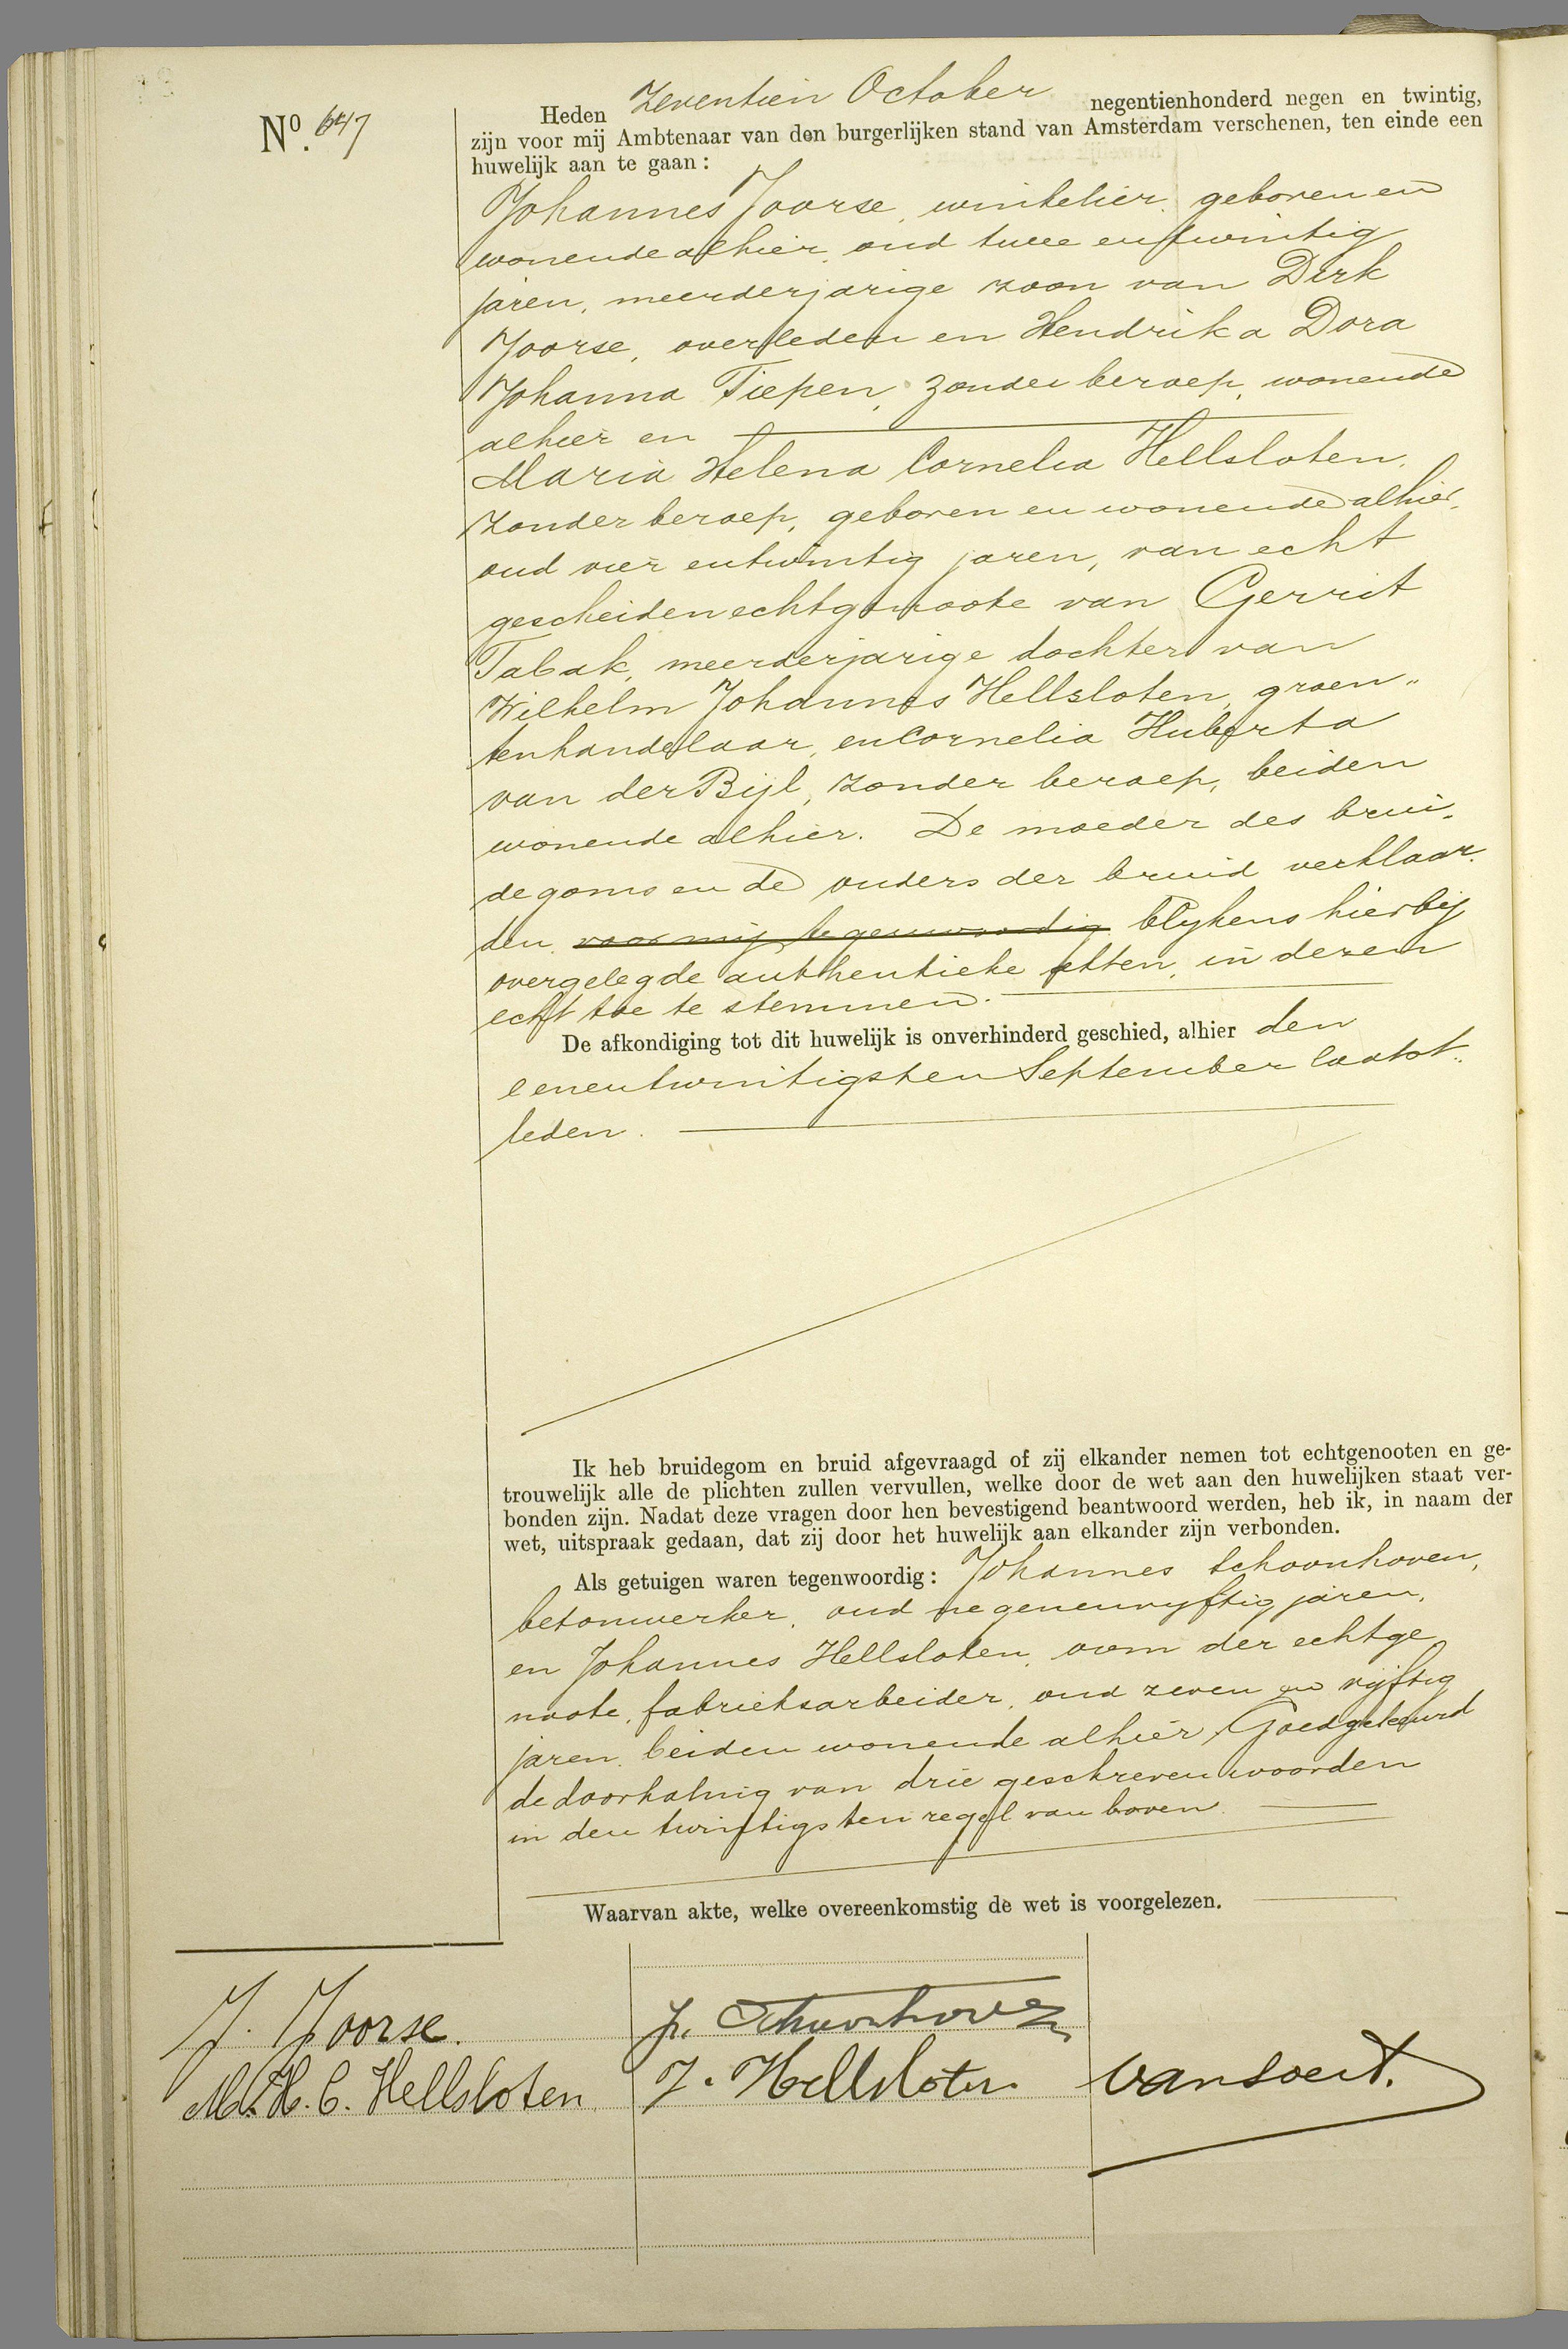 Nº. 647
Heden Zeventien October negentienhonderd negen en twintig,
zijn voor mij Ambtenaar van den burgerlijken stand van Amsterdam verschenen, ten einde een
huwelijk aan te gaan:
Johannes Joorse, winkelier, geboren en
wonende alhier, oud twee en twintig
jaren, meerderjarige zoon van Dirk
Joorse, overleden en Hendrika Dora
Johanna Tiepen, zonder beroep, wonende
alhier en
Maria Helena Cornelia Hellsloten,
zonder beroep, geboren en wonende alhier,
oud vier en twintig jaren, van echt
gescheiden echtgenoote van Gerrit
Tabak, meerderjarige dochter van
Wilhelm Johannes Hellsloten, groen„
tenhandelaar, en Cornelia Huberta
van der Bijl, zonder beroep, beiden
wonende alhier. De moeder des brui„
degoms en de ouders der bruid verklaar„
den voor mij tegenwoordig blijkens hierbij
overgelegde authentieke akten, in dezen
echt toe te stemmen.
De afkondiging tot dit huwelijk is onverhinderd geschied, alhier den
eenentwintigsten September laatst„
leden.
Ik heb bruidegom en bruid afgevraagd of zij elkander nemen tot echtgenooten en ge-
trouwelijk alle de plichten zullen vervullen, welke door de wet aan den huwelijken staat ver-
bonden zijn. Nadat deze vragen door hen bevestigend beantwoord werden, heb ik, in naam der
wet, uitspraak gedaan, dat zij door het huwelijk aan elkander zijn verbonden.
Als getuigen waren tegenwoordig: Johannes Schoonhoven,
betonwerker, oud negenenvijftig jaren,
en Johannes Hellsloten, oom der echtge
noote, fabrieksarbeider, oud zeven en vijftig
jaren, beiden wonende alhier. Goedgekeurd
de doorhaling van drie geschreven woorden
in den twintigsten regel van boven.
Waarvan akte, welke overeenkomstig de wet is voorgelezen.
J. Joorse.
M. H. C. Hellsloten
J. Schoonhoven
J. Hellsloten
van Soest.